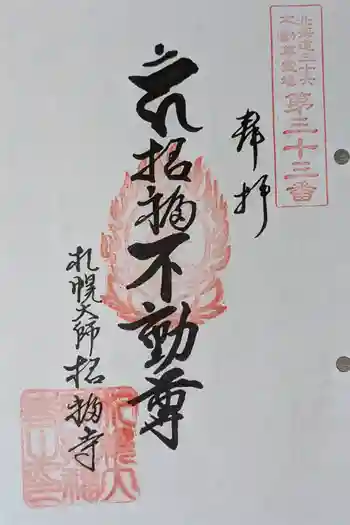 北海道三十六
不動尊霊場
第三十三番
奉拝
招福不動尊
札幌大師 招福寺